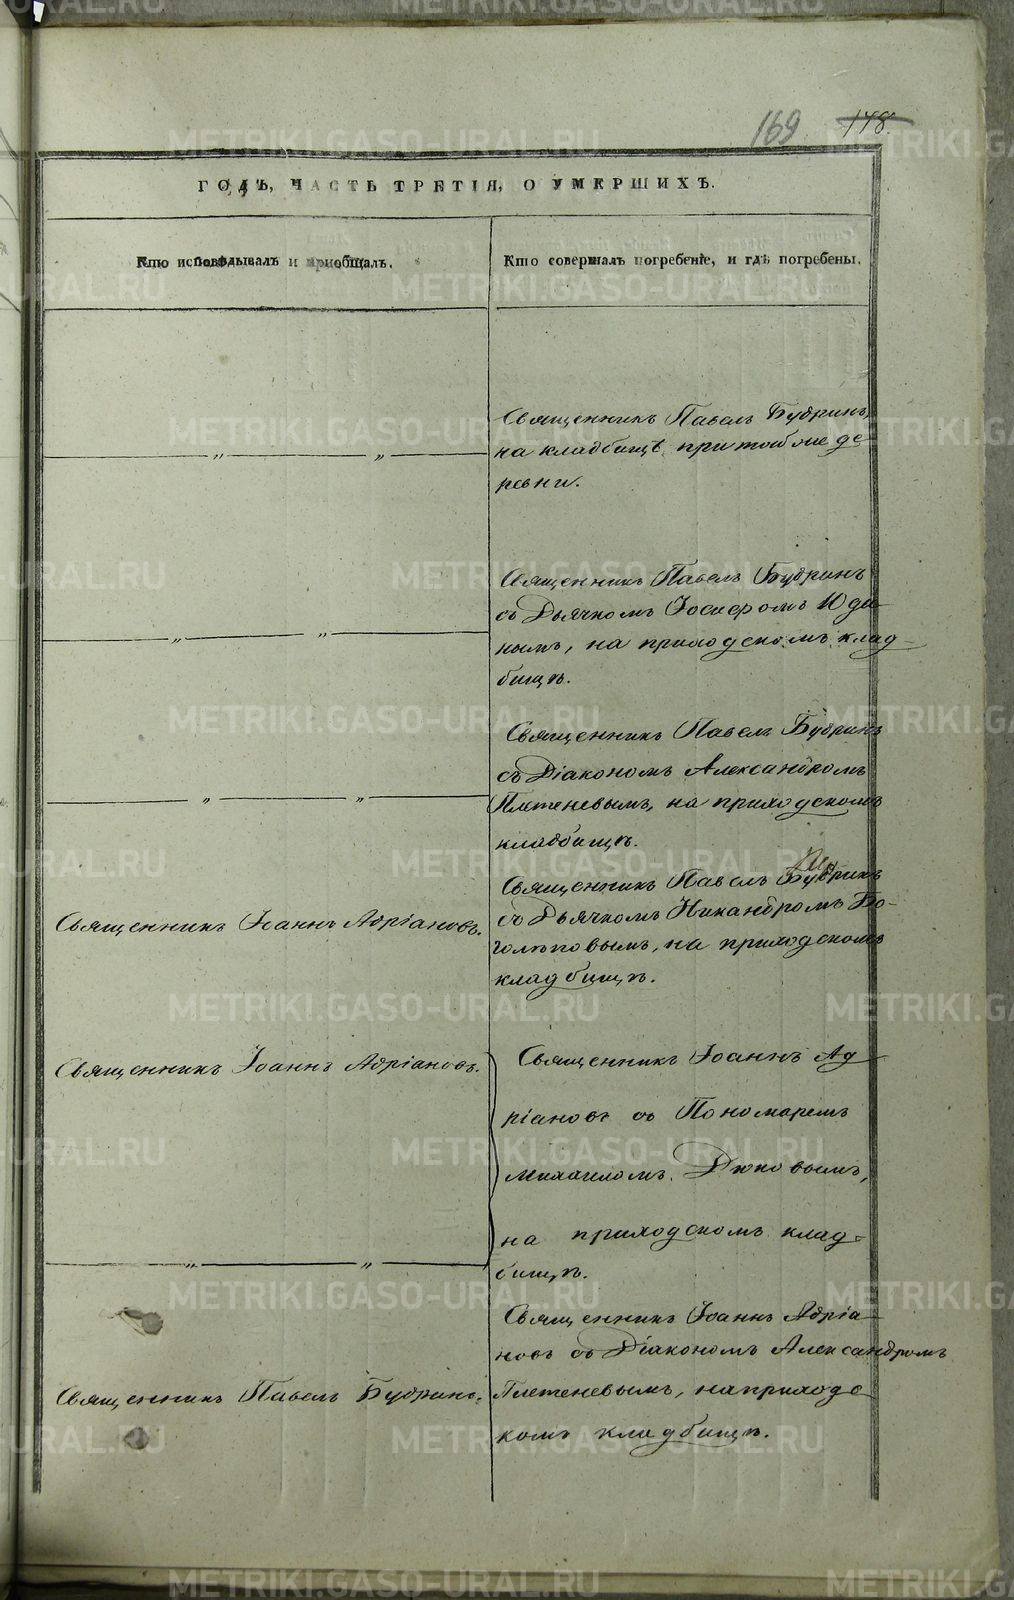 169 148.
ГОДЪ, ЧАСТЬ ТРЕТІЯ, О УМЕРШИХЪ.
Кто исповѣдывалъ и приобщалъ.
Кто совершалъ погребеніе, и гдѣ погребены.
Священникъ Павелъ Бубринъ,
на кладбищѣ при той же де-
ревни.
— „ — „ —
Священникъ Павелъ Бубринъ
съ Дьячкомъ Іосифомъ Юди-
нымъ, на приходскомъ клад-
бищѣ.
— „ — „ —
Священникъ Павелъ Бубринъ
съ Діакономъ Александромъ
Плетеневымъ, на приходскомъ
кладбищѣ.
— „ — „ —
Священникъ Іоаннъ Адріановъ.
Священникъ Павелъ Бубринъ
съ Дьячкомъ Никандромъ Бо-
голѣповымъ, на приходскомъ
кладбищѣ.
Священникъ Іоаннъ Адріановъ.
Священникъ Іоаннъ Ад-
ріановъ съ Пономаремъ
Михаиломъ Дюковымъ,
на приходскомъ клад-
бищѣ.
— „ — „ —
Священникъ Павелъ Бубринъ.
Священникъ Іоаннъ Адріа-
новъ съ Діакономъ Александромъ
Плетеневымъ, на приходс-
комъ кладбищѣ.
METRIKI.GASO-URAL.RU